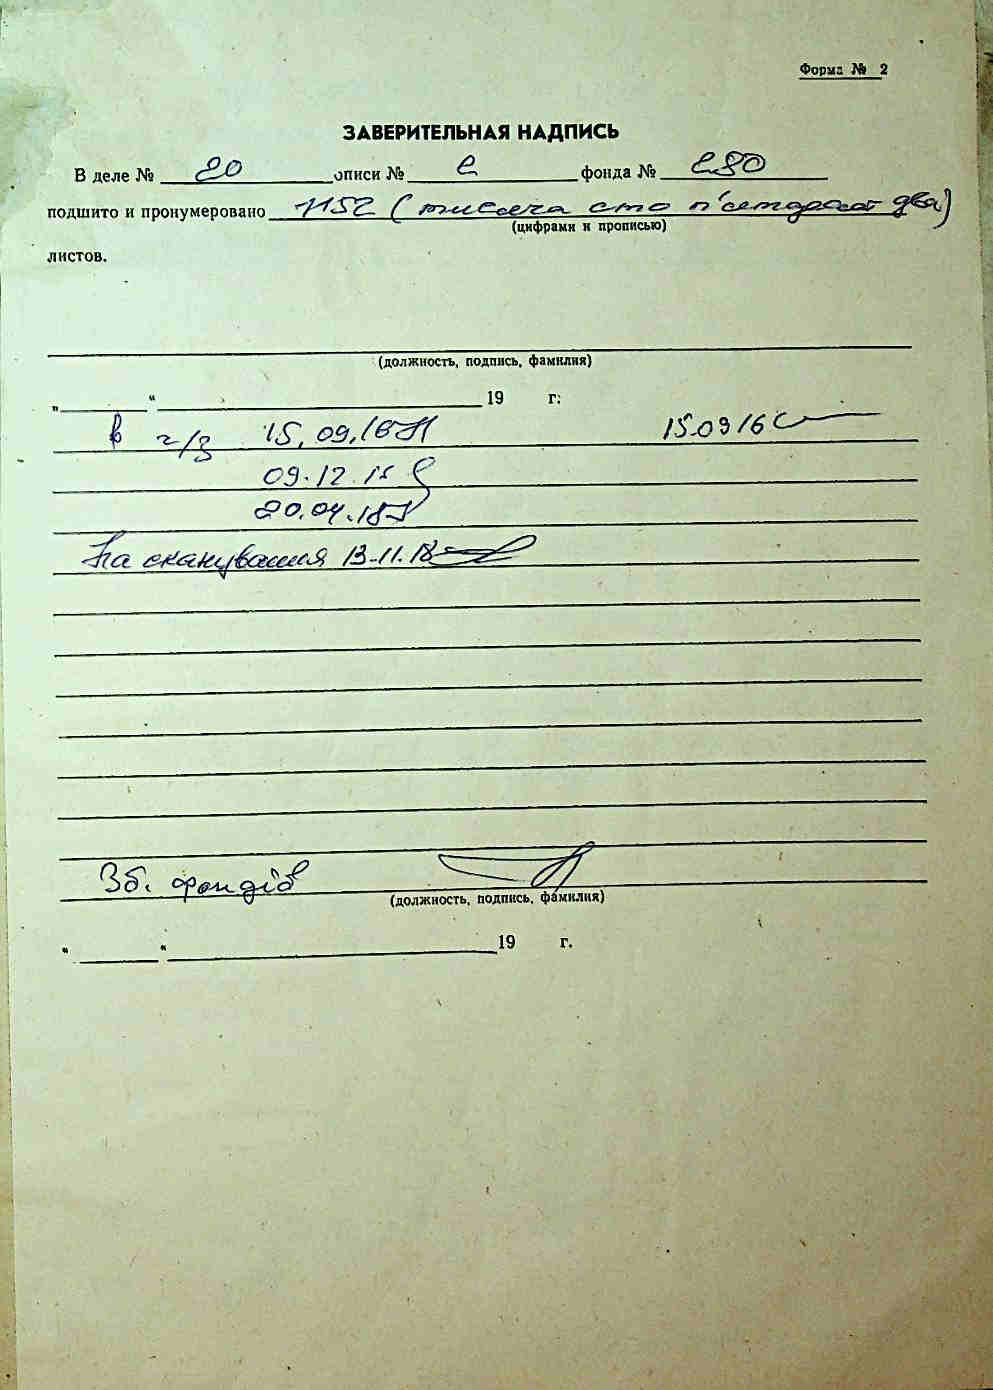 Форма № 2
ЗАВЕРИТЕЛЬНАЯ НАДПИСЬ
В деле № 20 описи № 2 фонда № 280
подшито и пронумеровано 1152 (тисяча сто п'ятдесят два)
(цифрами и прописью)
листов.
(должность, подпись, фамилия)
„ “ 19 г:
в ч/з 15.09.16 15.09 16
09.12.15
20.04.18
На сканування 13.11.18
Зб. фондів
(должность, подпись, фамилия)
“ “ 19 г.